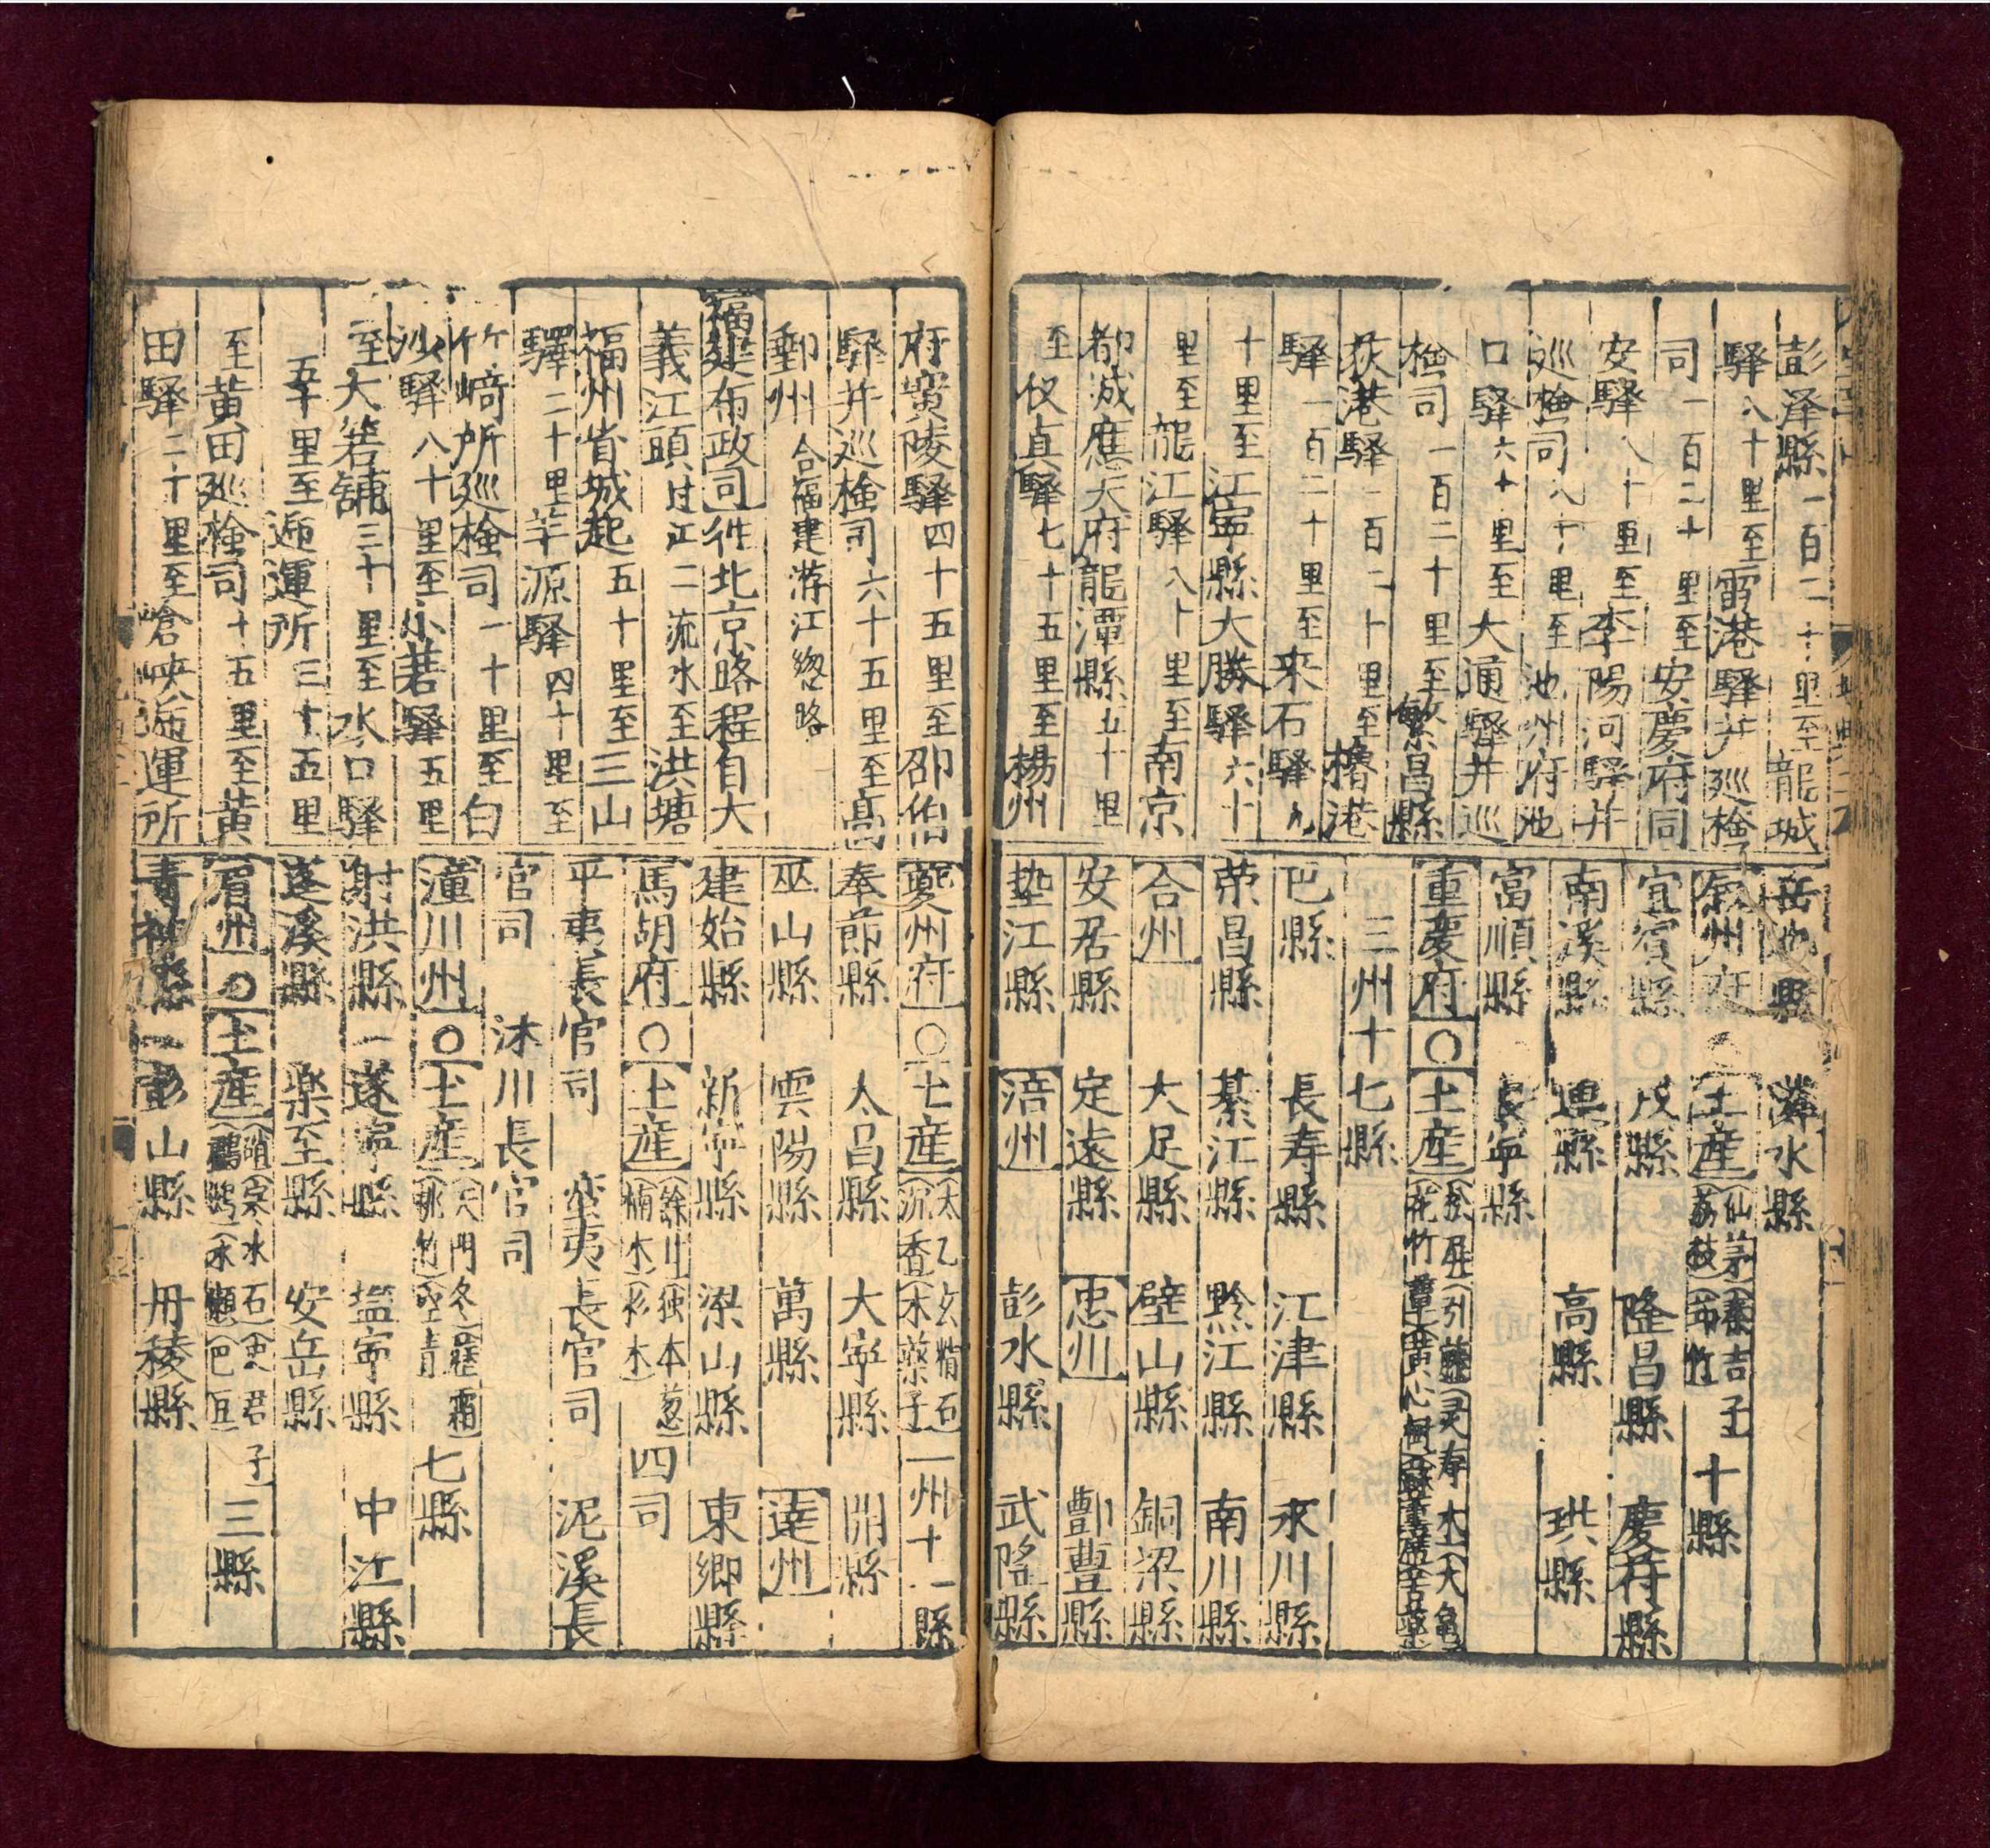 彭泽縣一百二十里至龍城
驛八十里至雷港驛并廵檢
司一百二十里至安慶府同
安驛八十里至李陽河驛并
廵檢司八十里至池州府池
口驛六十里至大通驛并巡
檢司一百二十里至繁昌縣
荻港驛一百二十里至櫓港
驛一百二十里至来石驛九
十里至江寧縣大勝驛六十
里至龍江驛八十里至南京
都城應天府龍潭縣五十里
至仪真驛七十五里至楊州
岳池縣 水縣
叙州府 土産 仙茅 荔枝 十縣
宜賓縣 戎縣 隆昌縣 慶符縣
南溪縣 興縣 高縣 珙縣
富順縣 長寧縣
重慶府 〇 土産 花竹 引藤 灵寿木 大龜
三州十七縣
巴縣 長寿縣 江津縣 永川縣
荣昌縣 綦江縣 黔江縣 南川縣
合州 大足縣 壁山縣 銅梁縣
安居縣 定遠縣 忠州 酆豊縣
墊江縣 涪州 彭水縣 武隆縣
府黄陵驛四十五里至邵伯
驛并巡檢司六十五里至高
郵州 合福建浙江緫略
福建布政司 徃北京路程自大
義江頭过江二流水至洪塘
福州省城起五十里至三山
驛二十里芋源驛四十里至
竹崎所廵檢司一十里至白
沙驛八十里至小箬驛五里
至大箬舖三十里至水口驛
五十里至逓運所三十五里
至黄田廵檢司十五里至黄
田驛二十里至嵢峽逓運所
夔州府 〇 土産 太乙玄精石 沉香 木藥子 一州十一縣
奉節縣 太昌縣 大寧縣 開縣
巫山縣 雲陽縣 萬縣 達州
建始縣 新寧縣 梁山縣 東鄉縣
馬胡府 〇 土産 楠木 独本葱 杉木 四司
平夷長官司 蛮夷長官司 泥溪長
官司 沐川長官司
潼川州 〇 土産 天門冬 桃竹 空青 七縣
射洪縣 遂寧縣 塩寧縣 中江縣
蓬溪縣 楽至縣 安岳縣
眉州 〇 土産 巴豆 三縣
青神縣 彭山縣 丹稜縣